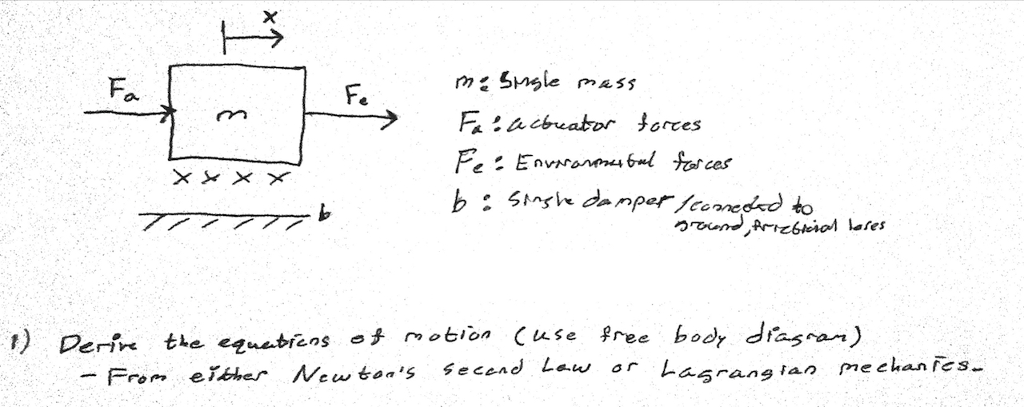 x
Fa
m
Fe
x x x x
b
m: Single mass
Fa: actuator forces
Fe: Environmental forces
b: Single damper /connected to
ground, frictional loses
1) Derive the equations of motion (use free body diagram)
- From either Newton's second Law or Lagrangian mechanics.